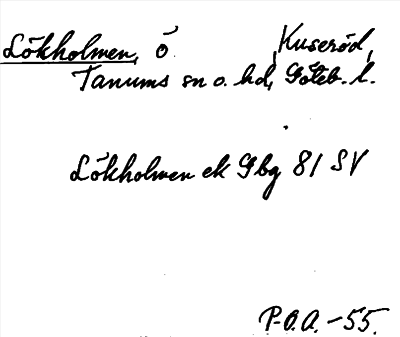 Lökholmen, ö Kuseröd,
Tanums sn o. hd, Göteb. l.
Lökholmen ek Gbg 81 SV
P-O.A. -55.